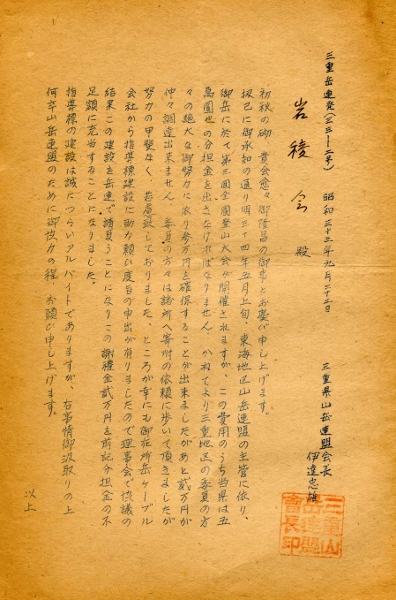 三重岳連発(三三ー二号)
昭和三十三年九月二十二日
三重県山岳連盟会長
伊達忠雄
岩稜会 殿
初秋の砌 貴会愈々御隆昌の御事とお慶び申し上げます。
扨已に御承知の通り明三十四年五月上旬、東海地区山岳連盟の主管に依り、
御岳に於て第三回全国登山大会が開催されますが、この費用のうち当県は五
萬圓也の分担金を出さなければなりません。かねてより三重地区の委員の方
々の絶大な御努力に依り参万円を確保することが出来ましたがあと貳万円が
仲々調達出来ません。委員の方々は諸所へ寄附の依頼に歩いて頂きましたが
努力の甲斐なく、苦慮致しておりました。ところが幸にも御在所岳ケーブル
会社から指導標建設に助力願い度旨の申出が有りましたので理事会で協議の
結果この建設を岳連で請負うことになりこの謝礼金貳万円を前記分担金の不
足額に充当することになりました。
指導標の建設は誠につらいアルバイトでありますが、右事情御汲取りの上
何卒山岳連盟のために御協力の程 お願い申し上げます。
以上
三重山
岳連盟
会長印